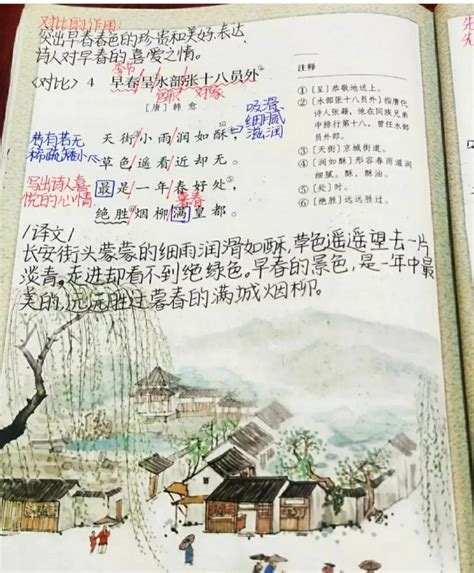 对比的作用:
突出早春春色的珍贵和美妙.表达
诗人对早春的喜爱之情。
季节
〈对比〉 4 早春呈水部张十八员外
对象
[唐] 韩愈
天街小雨润如酥,
草色遥看近却无。
最是一年春好处,
绝胜烟柳满皇都。
若有若无
稀疏矮小
写出诗人喜
悦的心情
细腻
滋润
暮春
注释
①〔呈〕恭敬地送上。
②〔水部张十八员外〕指唐代
诗人张籍,他在同族兄弟
中排行第十八,曾任水部
员外郎。
③〔天街〕京城街道。
④〔润如酥〕形容春雨滋润
细腻。酥,酥油。
⑤〔处〕时。
⑥〔绝胜〕远远胜过。
/译文/
长安街头蒙蒙的细雨润滑如酥,草色遥遥望去一片
淡青,走进却看不到绝绿色。早春的景色,是一年中最
美的,远远胜过暮春的满城烟柳。